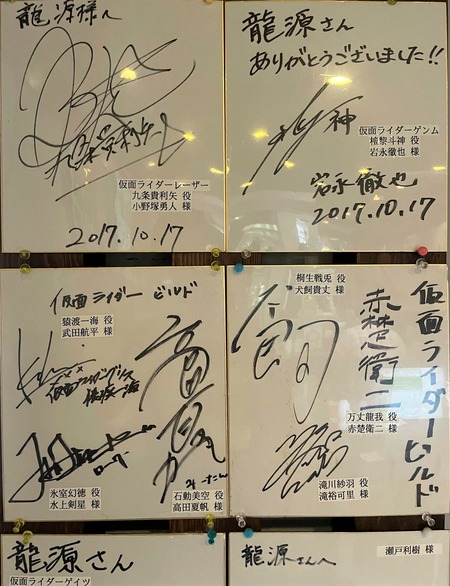 龍源様へ
九条貴利矢
仮面ライダーレーザー
九条貴利矢 役
小野塚勇人 様
2017.10.17
龍源さん
ありがとうございました!!
神
仮面ライダーゲンム
檀黎斗神 役
岩永徹也 様
岩永徹也
2017.10.17
仮面ライダービルド
猿渡一海 役
武田航平 様
仮面ライダーグリス
猿渡一海
高田夏帆
ローグ
氷室幻徳 役
水上剣星 様
石動美空 役
高田夏帆 様
桐生戦兎 役
犬飼貴丈 様
犬飼
赤楚衛二
仮面ライダービルド
万丈龍我 役
赤楚衛二 様
滝川紗羽 役
滝裕可里 様
龍源さん
仮面ライダーゲイツ
龍源さんへ
瀬戸利樹 様